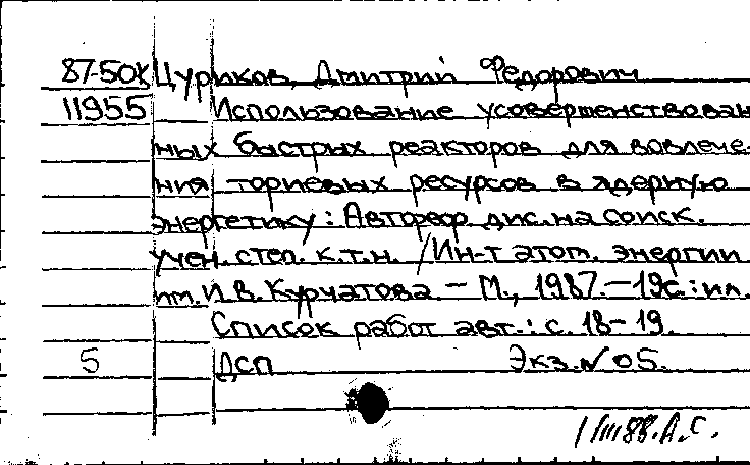 87-50к Цуриков, Дмитрий Федорович
11955 Использование усовершенствован
ных быстрых реакторов для вовлече-
ния ториевых ресурсов в ядерную
энергетику: Автореф. дис. на соиск.
учен. степ. к.т.н. /Ин-т атом. энергии
им. И.В. Курчатова. – М., 1987. – 19с.: ил.
Список работ авт.: с. 18-19.
5 ДСП Экз. № 05.
1/III 88. А.С.